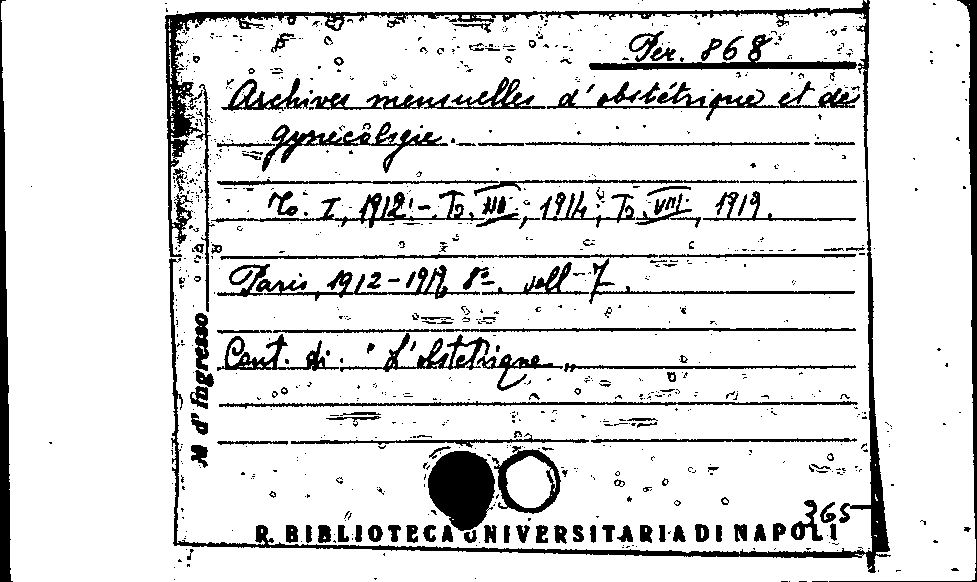 Per. 868
Archives mensuelles d'obstétrique et de
gynécologie.
To. I, 1912 - To. III, 1914; To. VIII, 1919.
Paris, 1912-1919, 8º. voll 7.
Cont. di: "L'obstetrique"
N d'Ingresso
365
R. BIBLIOTECA UNIVERSITARIA DI NAPOLI